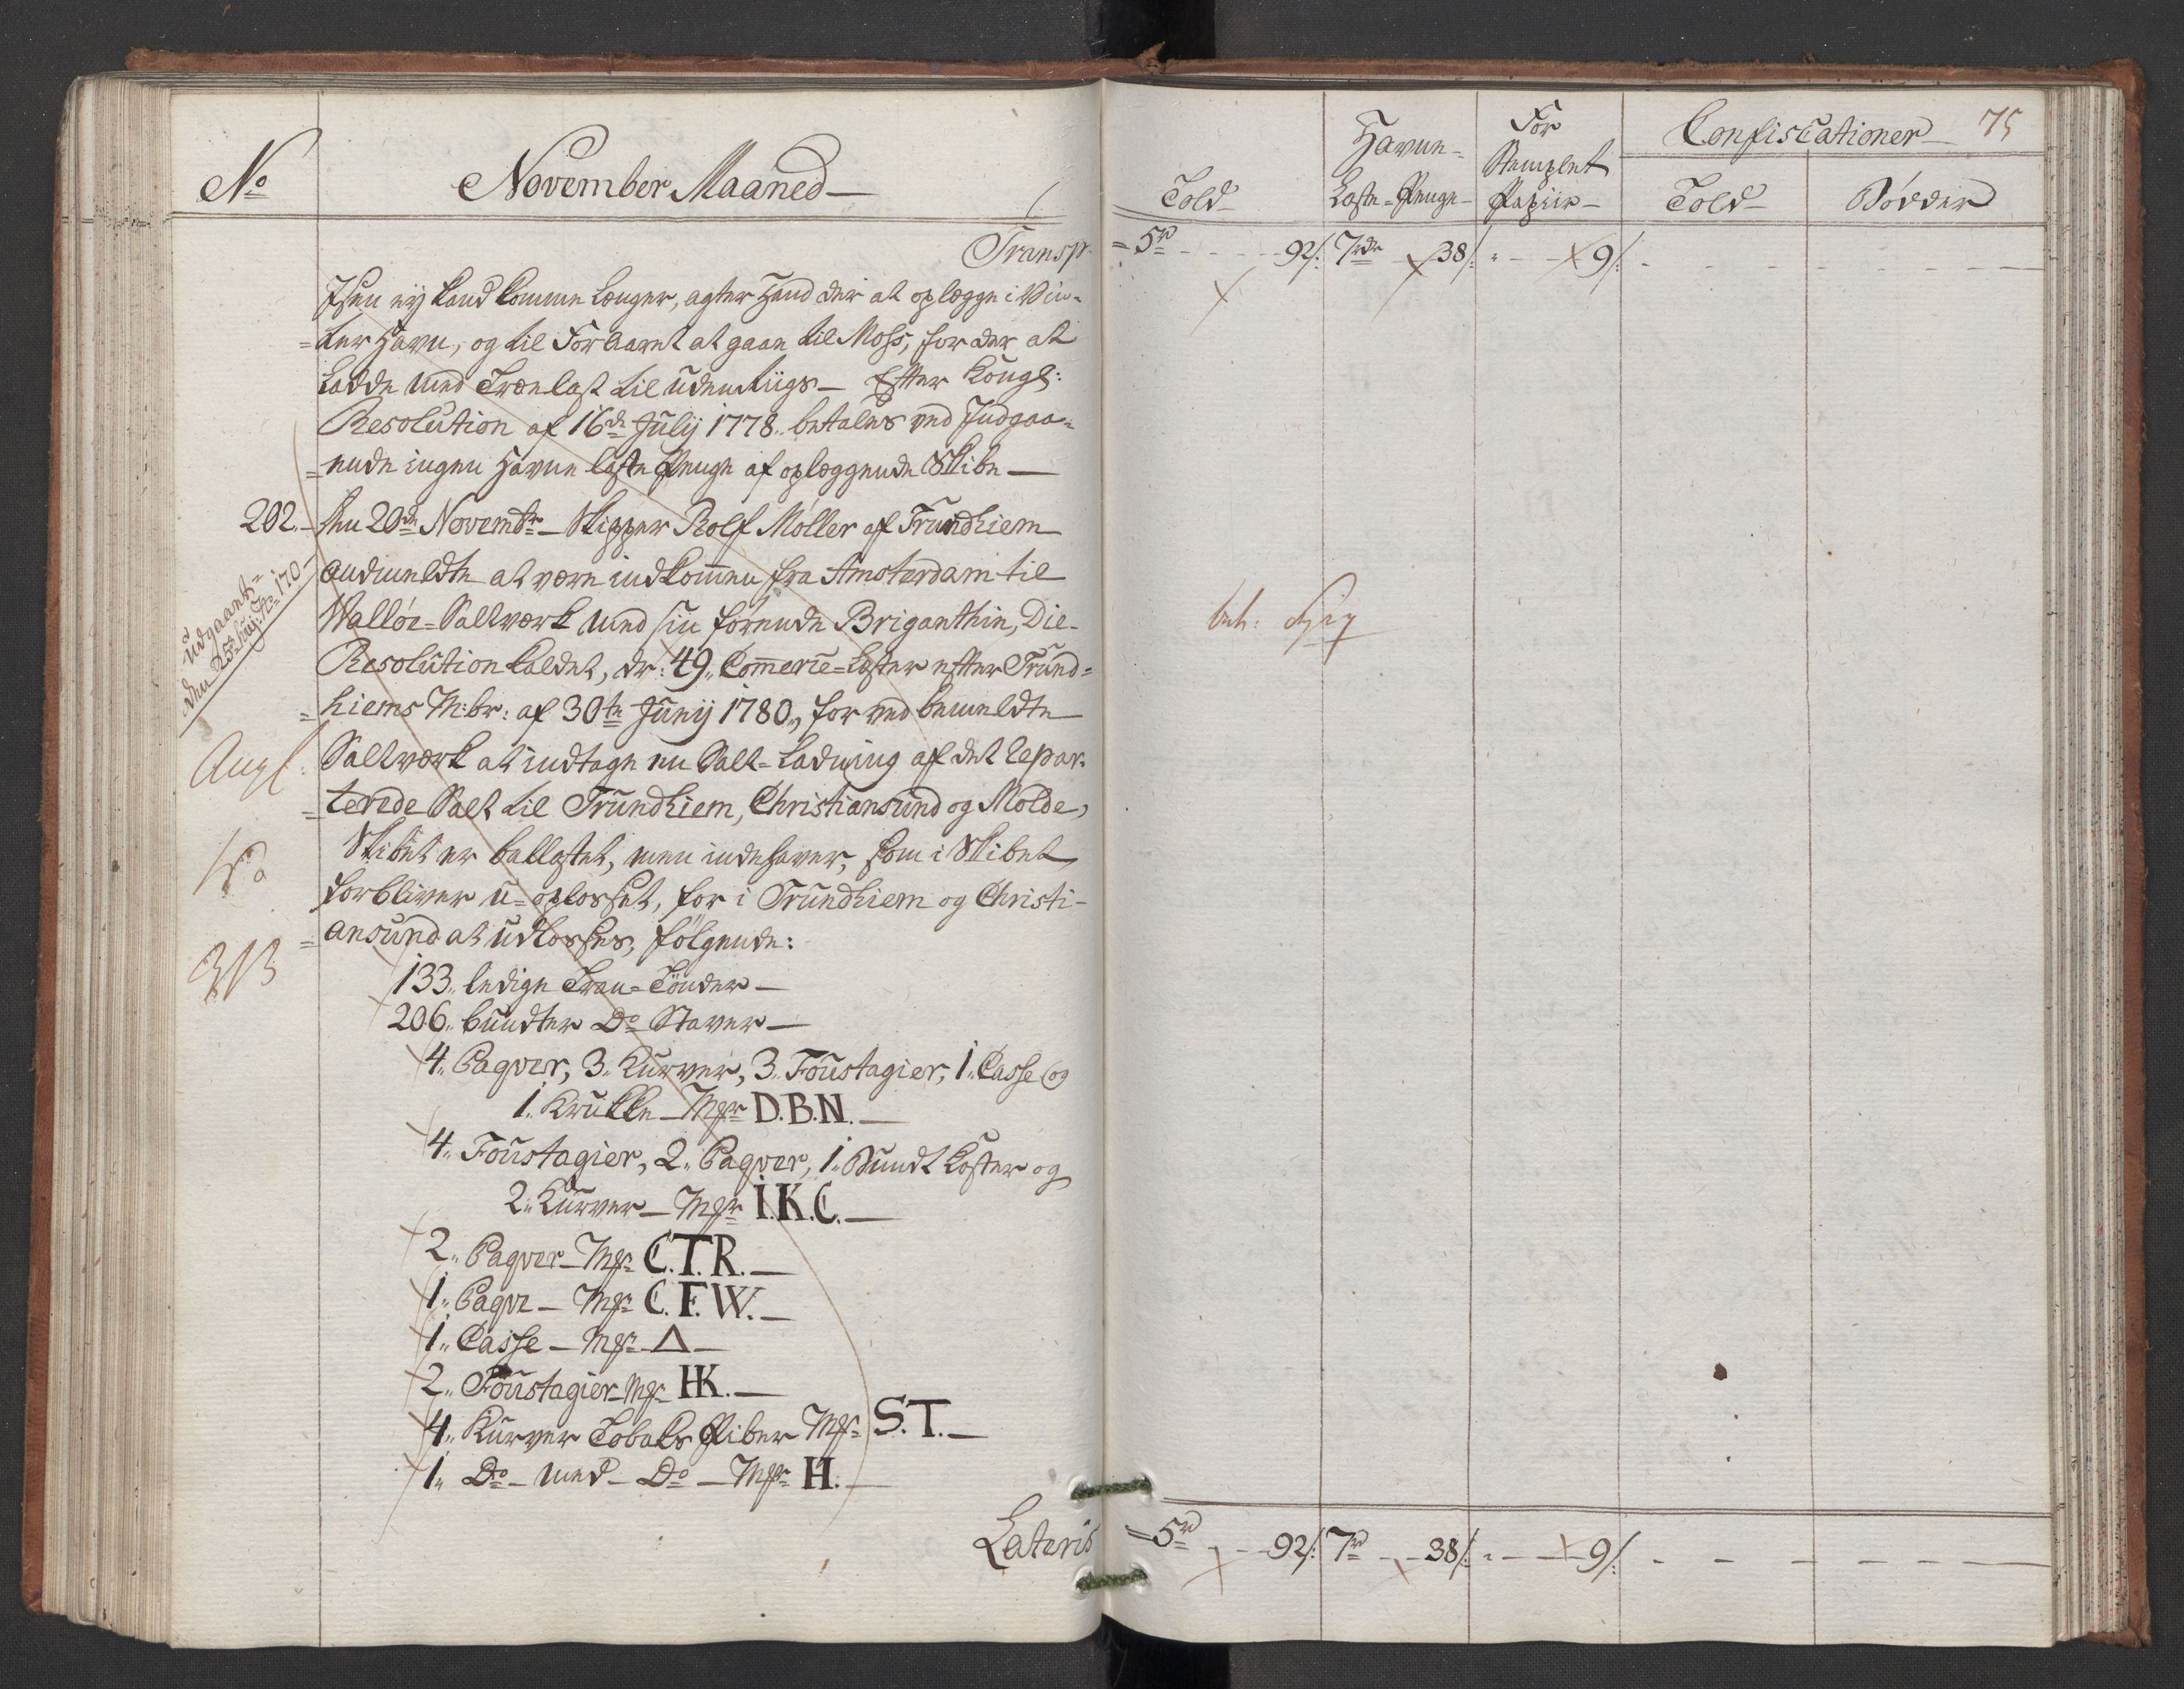 No
November Maaned
Transp
Isen ey kand komme længer, agter hand der at oplægge i Vin-
=ter Havn, og til Foraaret at gaae til Moss, for der at
ladde med Trælast til udenrigs — Efter Kongl:
Resolution af 16de July 1778. betales ved Indgaa-
=ende ingen Havne Laste Penge af oplæggende Skibe —
202. Den 20de Novembr — Skipper Rolf Møller af Trundhiem
andmeldte at være indkommen fra Amsterdam til
Walløe-Saltværk med sin førende Briganthin, Die
Resolution kaldet, dr: 49. Commerce-Læster efter Trund-
=hiems M:br: af 30te Juny 1780, for ved bemeldte
Saltværk at indtage en Salt-Ladning af det repar-
=terede Salt til Trundhiem, Christiansund og Molde,
Skibet er ballastet, men indehaver, som i Skibet
forbliver u-oplosset, for i Trundhiem og Christi-
=ansund at udlosses, følgende:
133. ledige Tran-Tønder —
206. bundter Do Staver —
4. Paqver, 3. Kurver, 3. Foustagier, 1. Casse og
1. Krukke — Mfr D.B.N. —
4. Foustagier, 2. Paqver, 1. Bundt Koster og
2. Kurver — Mfr I.K.C. —
2. Paqver — Mfr C.T.R. —
1. Paqve — Mfr C.F.W. —
1. Casse — Mfr △ —
2. Foustagier — Mfr HK. —
4. Kurver Tobaks Piber Mfr S.T. —
1. Do — med — Do — Mfr H. —
Lateris
Udgaaet
den 25de No 170
Angl:
75
Told
Havne-
Laste-Penge
For
Stemplet
Papiir
Confiscationer
Told
Bødder
= 5rd - - - 92/: 7rdr - 38/: " - - 9/: - - -
= 5rd - - 92/: 7rd - - 38/: " - - 9/: - - -